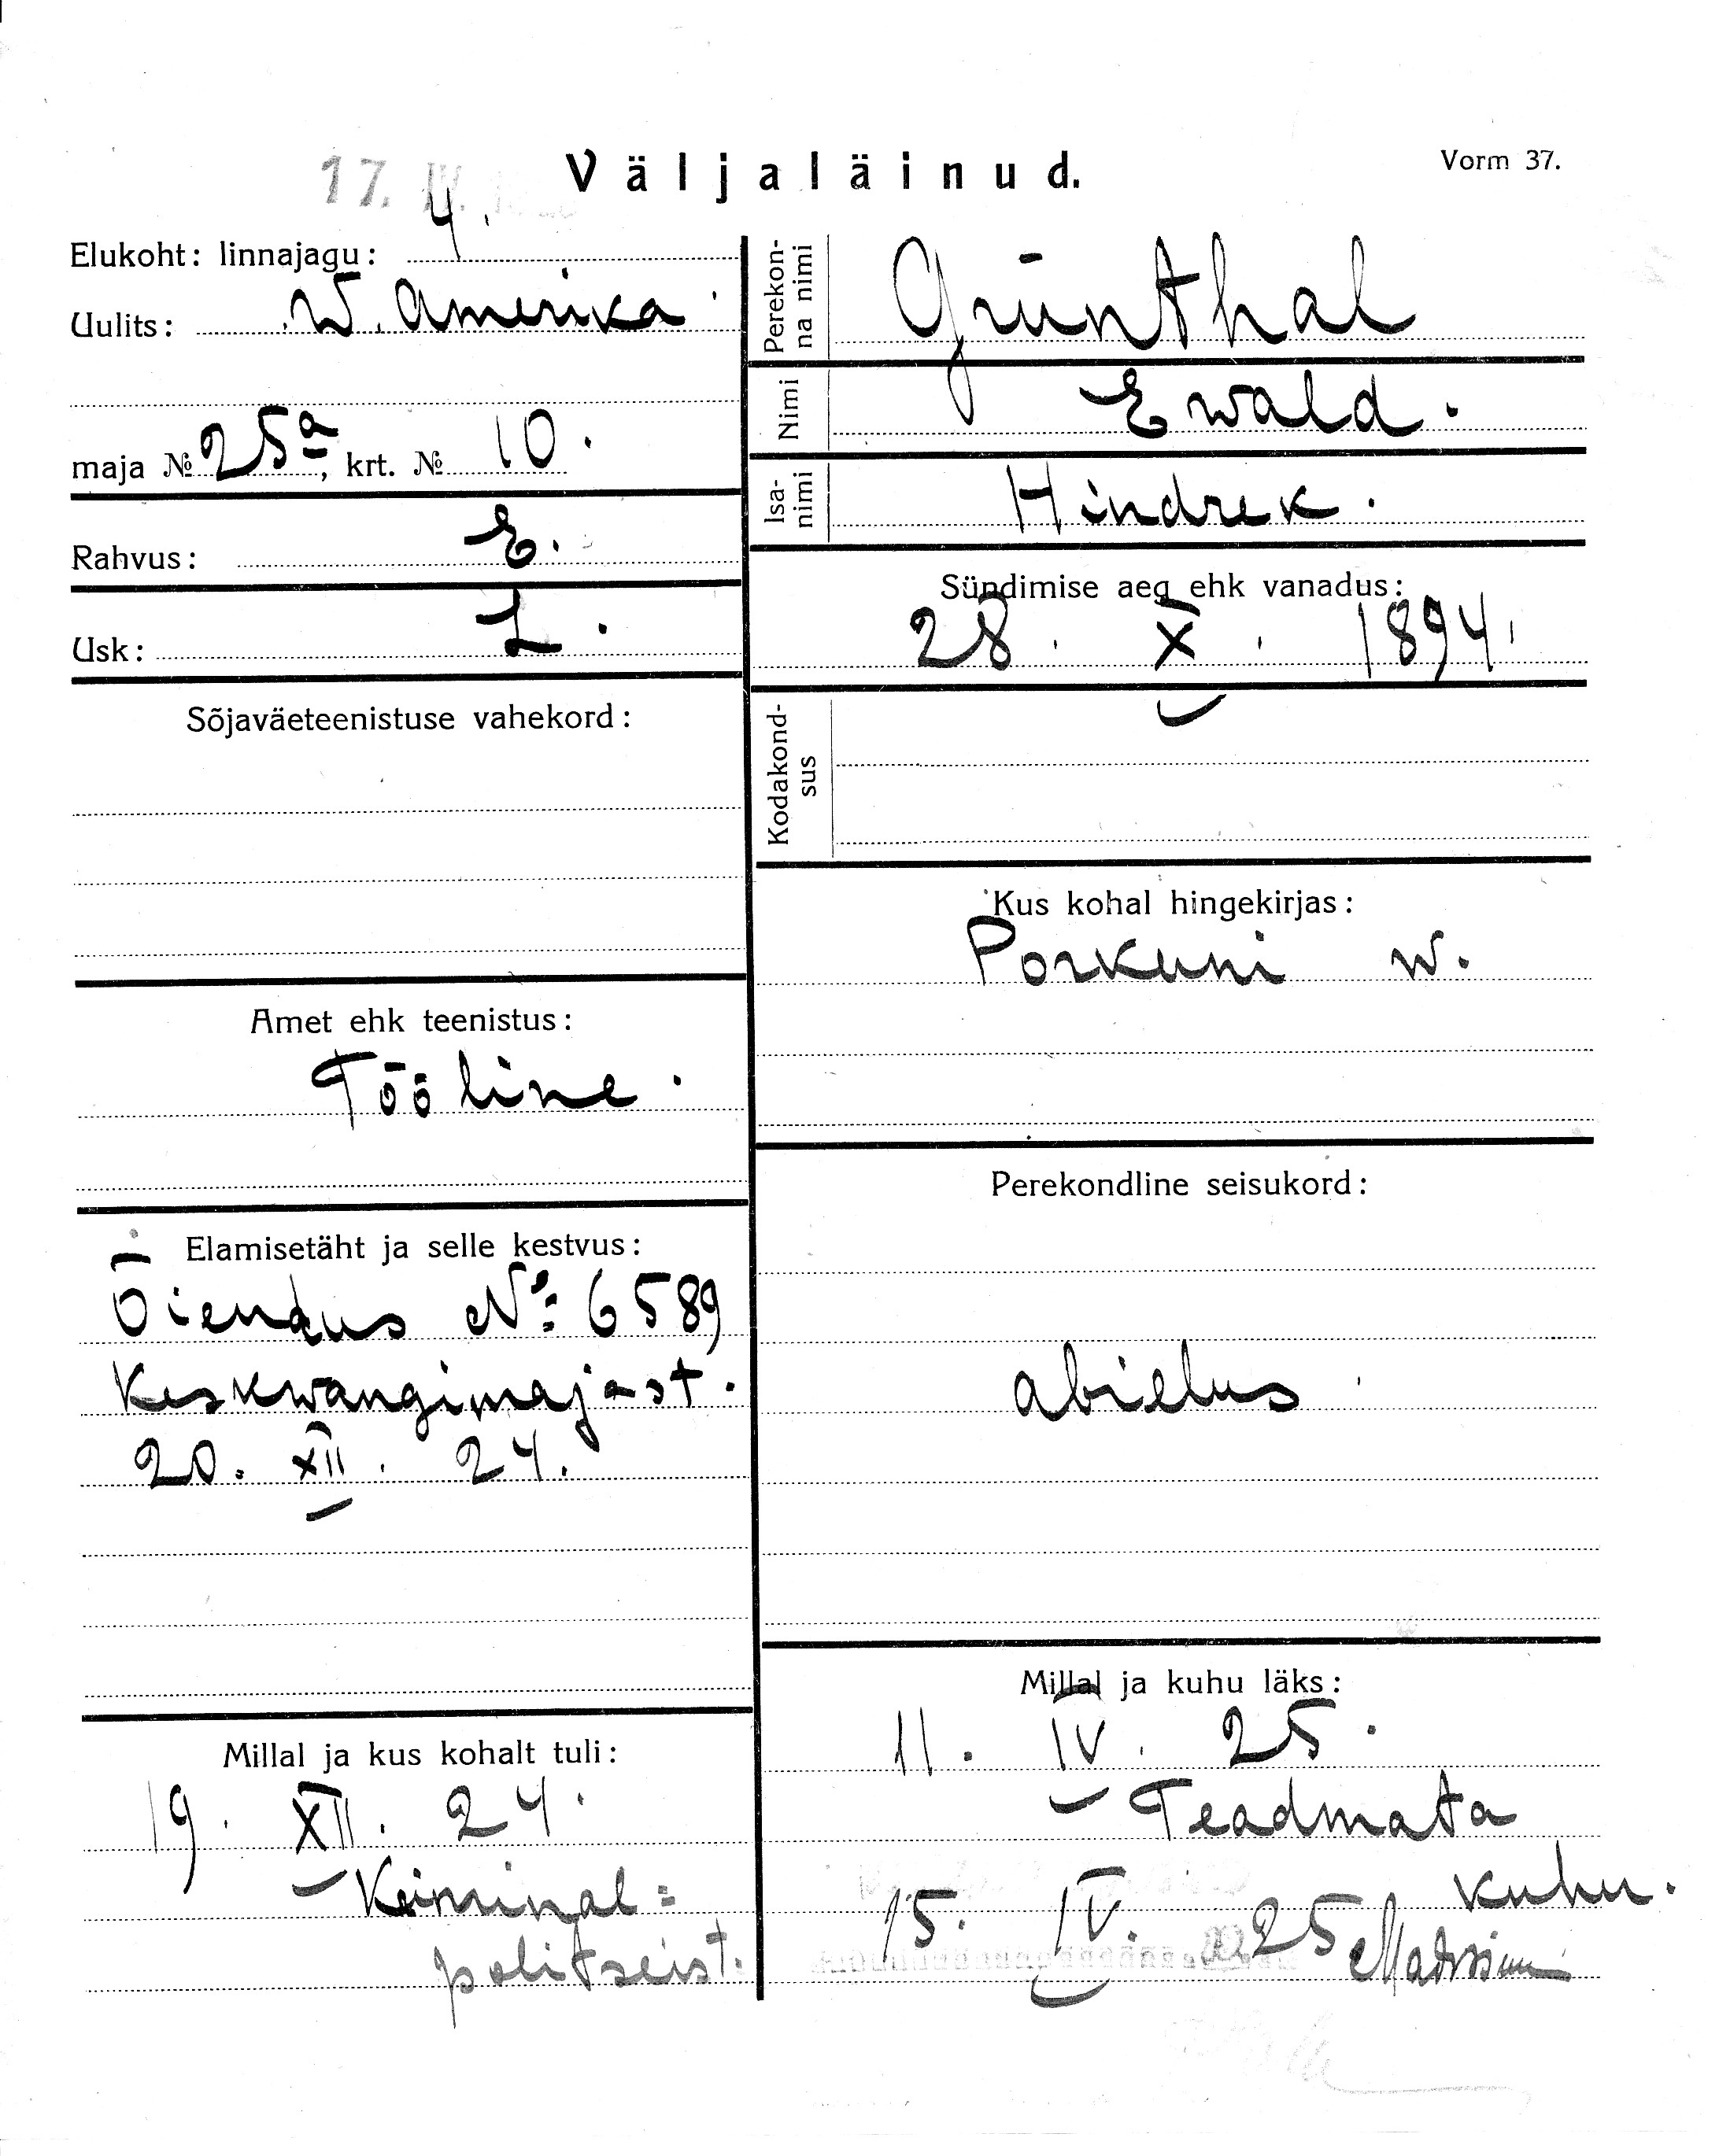 17. IV.
Väljaläinud.
Vorm 37.
Elukoht: linnajagu: 4.
Uulits: W. Amerika
maja № 25a, krt. № 10.
Rahvus: E.
Usk: L.
Sõjaväeteenistuse vahekord:
Amet ehk teenistus:
Tööline.
Elamisetäht ja selle kestvus:
Õiendus №: 6589
Keskwangimajast.
20. XII. 24.
Millal ja kus kohalt tuli:
19. XII. 24.
Kriminal=
politseist.
Perekon-
na nimi
Grünthal
Nimi
Ewald.
Isa-
nimi
Hindrek.
Sündimise aeg ehk vanadus:
28. X. 1894.
Kodakond-
sus
Kus kohal hingekirjas:
Porkuni w.
Perekondline seisukord:
abielus
Millal ja kuhu läks:
11. IV. 25.
Teadmata
kuhu.
15. IV. 25